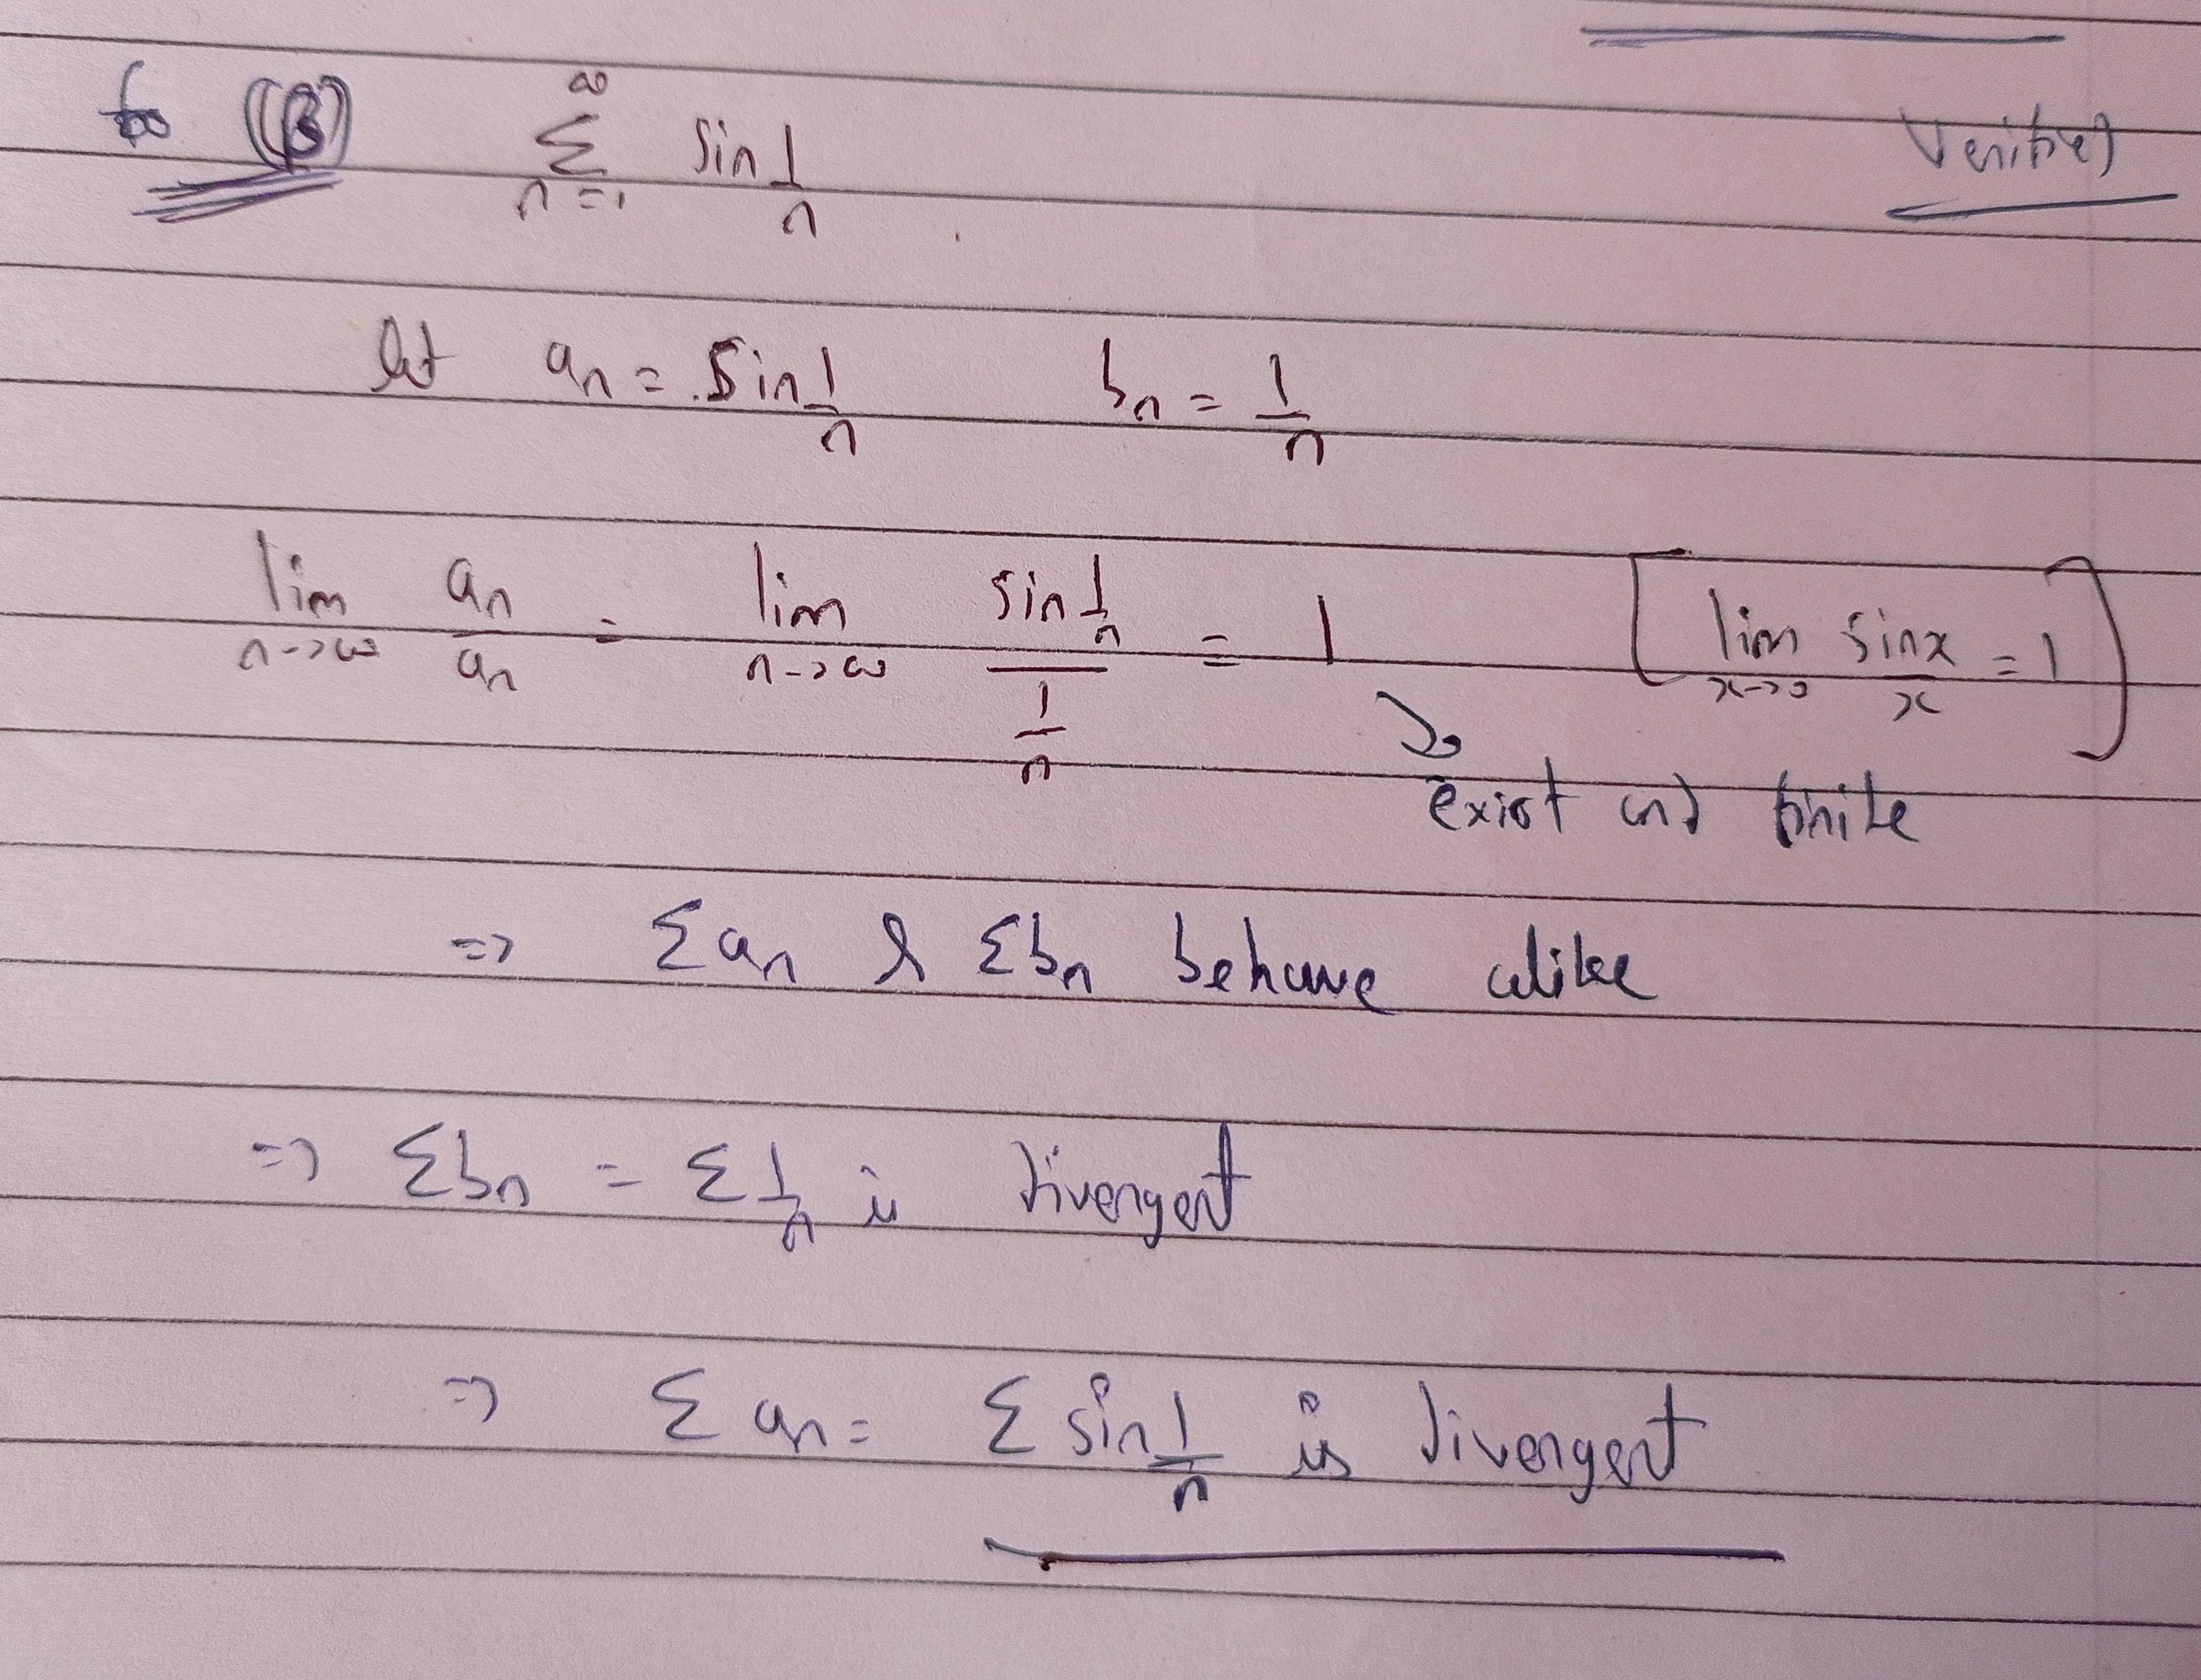 for (B) ∞ Σ n=1 sin 1/n
Verified
let an = sin 1/n bn = 1/n
lim n->∞ an/an = lim n->∞ sin 1/n / 1/n = 1 [lim x->0 sin x/x = 1]
exist and finite
=> Σan & Σbn behave alike
=> Σbn = Σ 1/n is divergent
=> Σ an = Σ sin 1/n is divergent